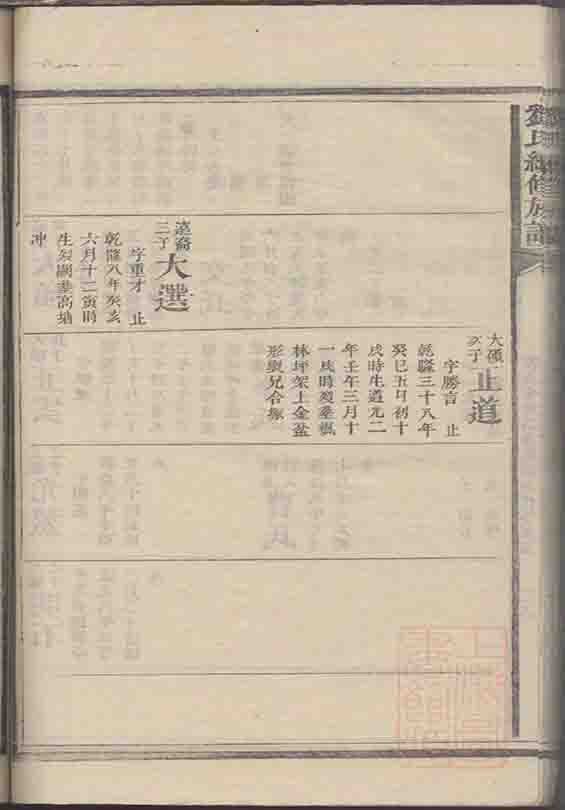 氏續修族譜
大碩
次子
正道
字勝言 止
乾隆三十八年
癸巳五月初十
戌時生道光二
年壬午三月十
一戌時歿葬楓
林坪架上金盆
形與兄合塚
遠裔
三子
大選
字重才 止
乾隆八年癸亥
六月十二寅時
生歿闕葬高塘
冲